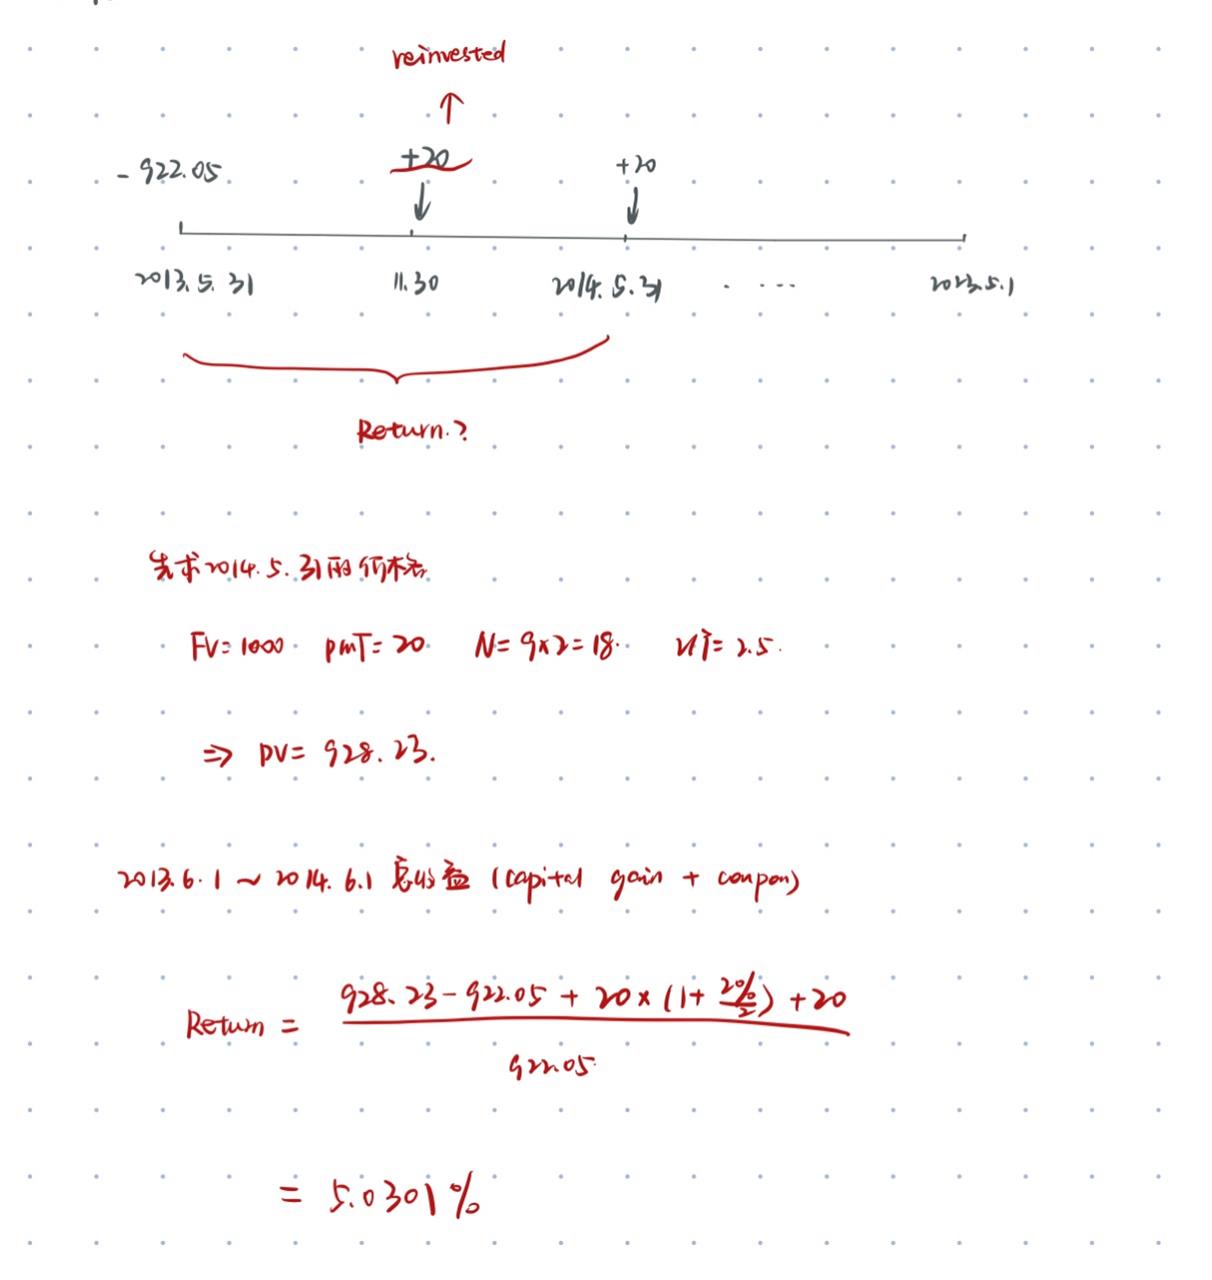 reinvested
- 922.05
+20
+20
2013.5.31
11.30
2014.5.31
. ....
2023.5.1
Return.?
先求2014.5.31的价格
FV=1000 pmT=20 N=9×2=18. I/Y=2.5.
⇒ PV= 928.23.
2013.6.1 ~ 2014.6.1 总收益 (capital gain + coupon)
Return = 928.23-922.05 + 20×(1+ 2%/2) +20
922.05
= 5.0301%